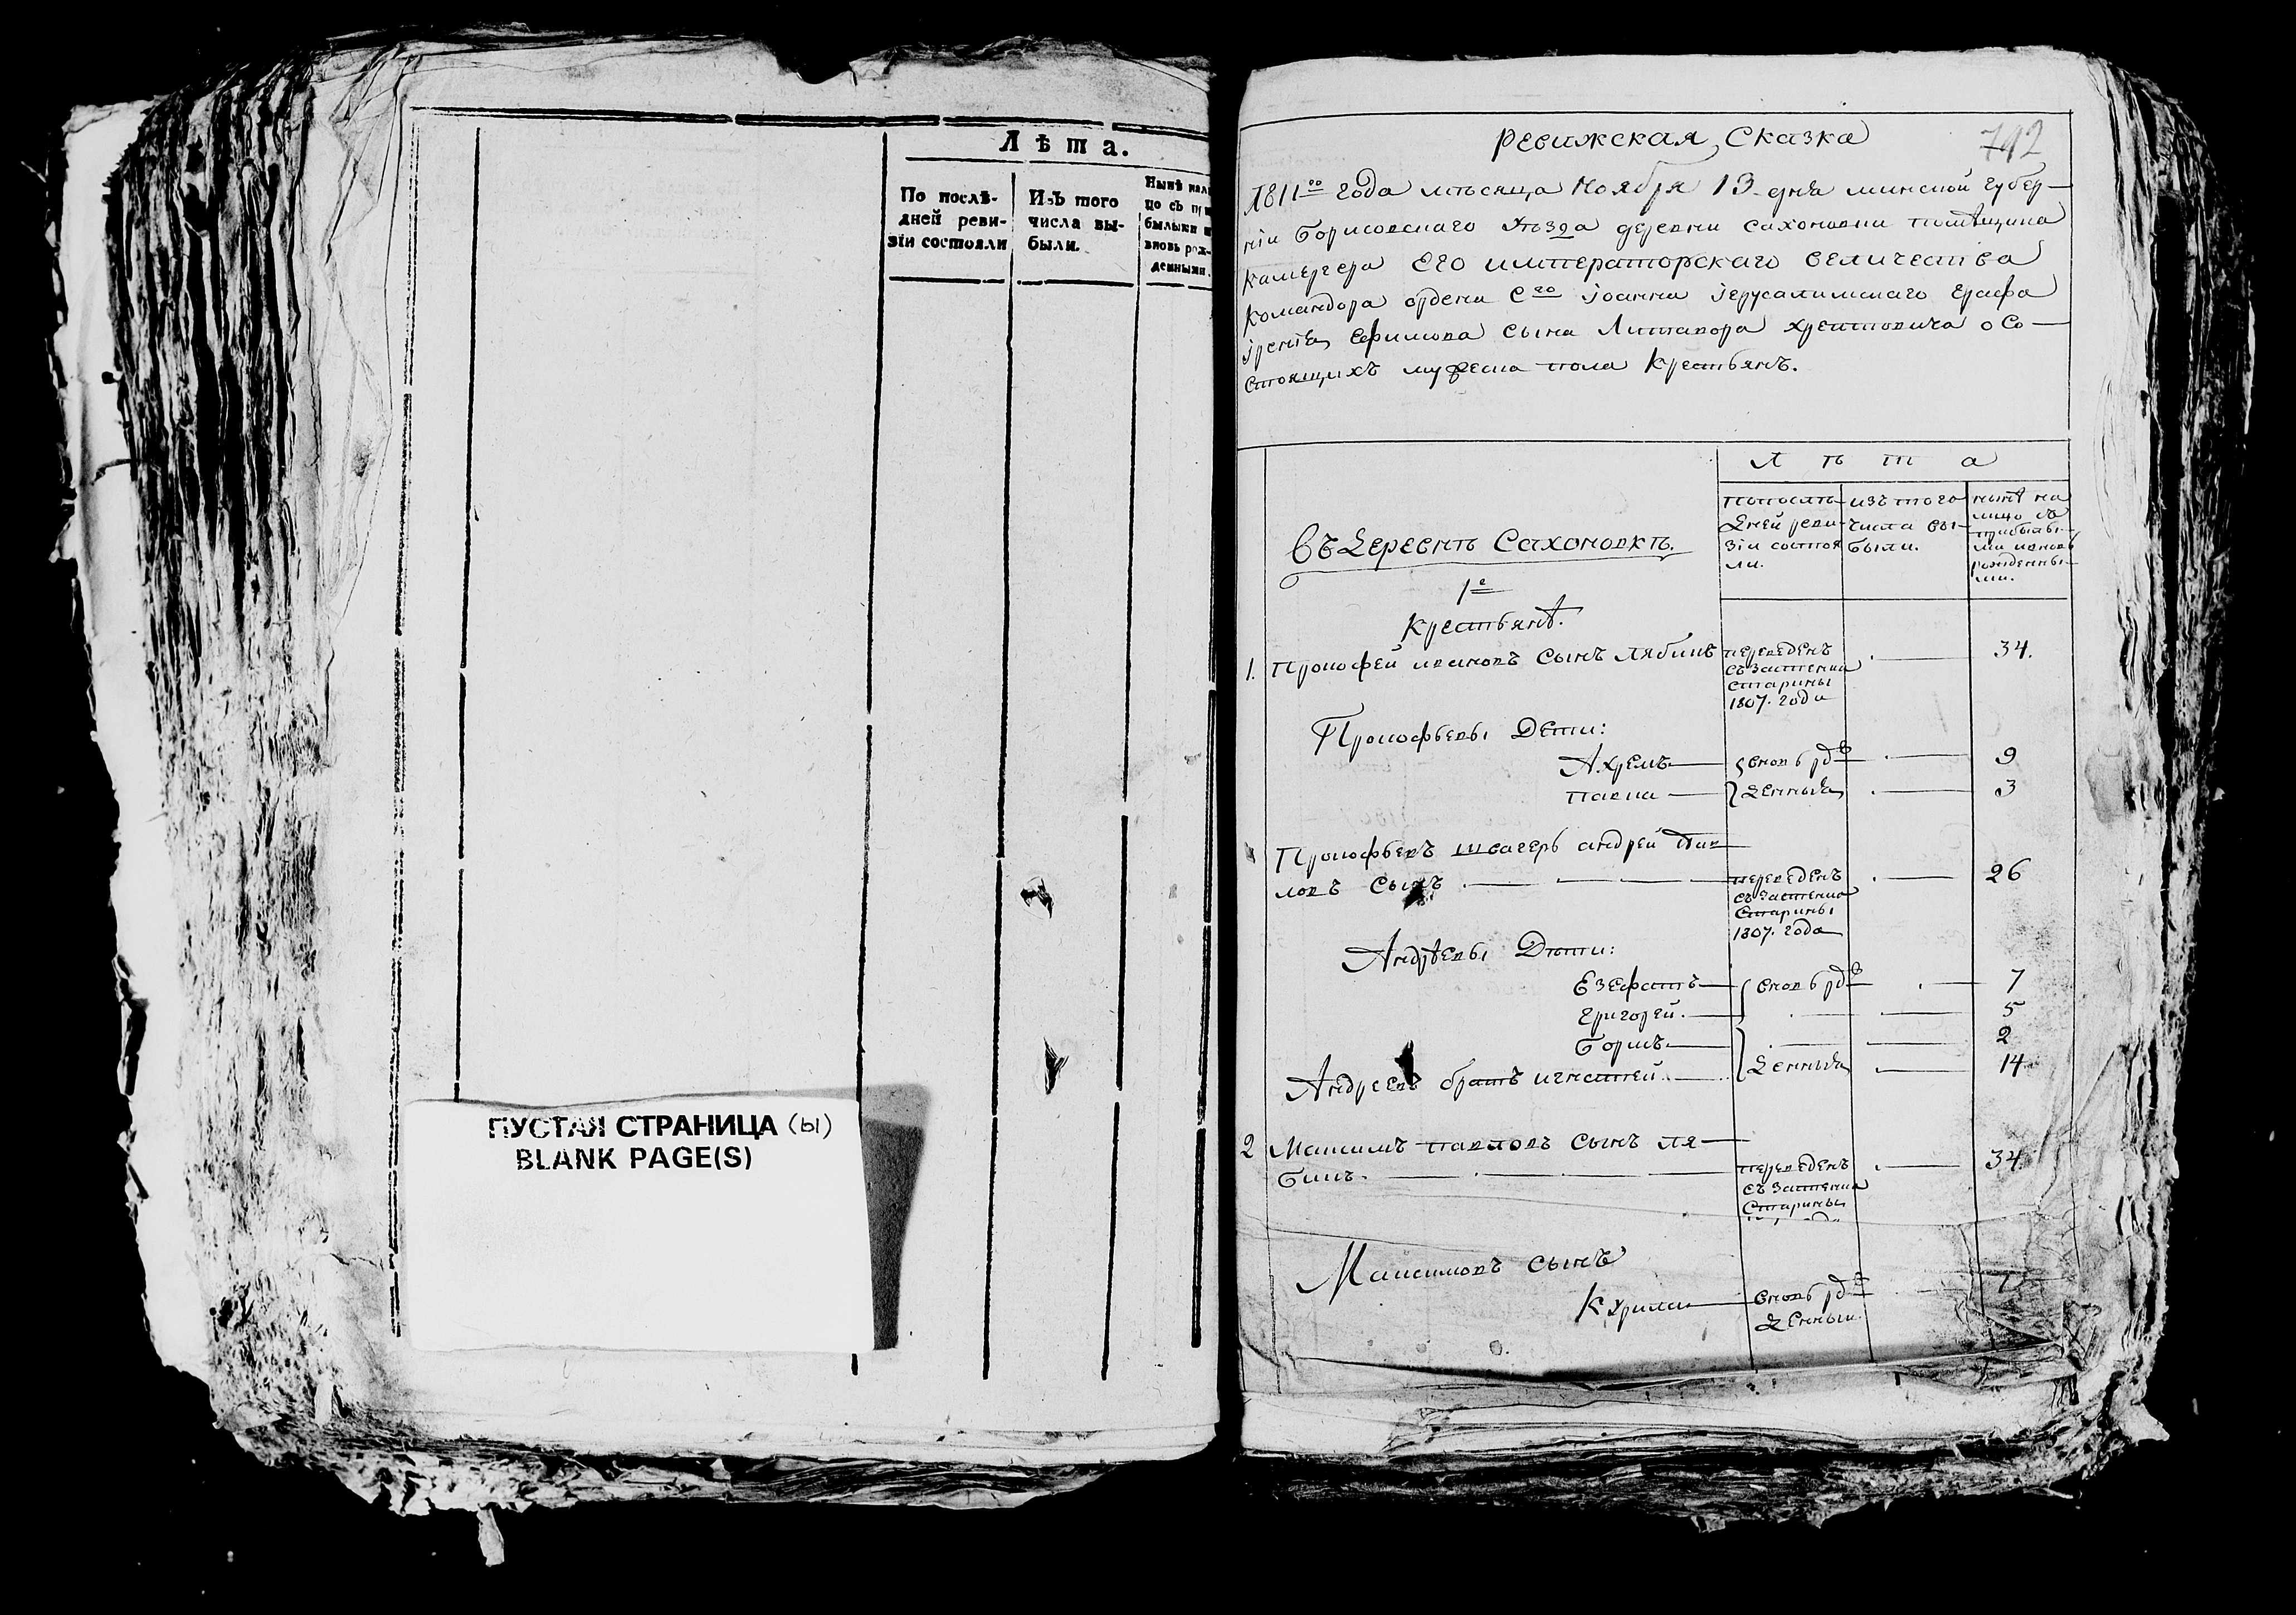 Лѣта.
По послѣ-
дней реви-
зіи состояли
Изъ того
числа вы-
были.
Нынѣ нали
цо съ при
былыми и
вновь рож-
денными.
ПУСТАЯ СТРАНИЦА (ы)
BLANK PAGE(S)
Ревижская Сказка
742
1811го года мѣсяца Ноября 13 дня минской губер-
ніи Борисовскаго уѣзда деревни сахоновки помѣщика
камергера Его императорскаго величества
командора ордена Сго іоанна іерусалимскаго графа
Ефимова сына Литавора хрептовича о со-
стоящихъ мужеска пола крестьянъ.
Лѣта
попослѣ-
дней реви-
зіи состоя
ли.
изъ того
числа вы-
были.
нынѣ на
лицо съ
прибылы-
ми и вновь
рожденны-
ми.
Въ деревнѣ Сахоновкѣ.
1е
Крестьянѣ.
1. Прокофей ивановъ сынъ лябикъ
переведенъ
съ застенка
старины
1807. года
34.
Прокофьевы Дети:
Ахремъ вновь рож 9
павла денныя 3
Прокофьевъ швагеръ андрей пав
ловъ сынъ 26
переведенъ
съ застенка
Старины
1807. года
Андрѣевы Дѣти:
Езефатъ вновь рож 7
григорей. 5
Борисъ 2
Андреевъ братъ игнатей денныя 14
2 Максимъ павловъ сынъ ля-
бикъ. 34
переведенъ
съ застенка
Старины
Максимовъ сынъ
вновь рож
денный.